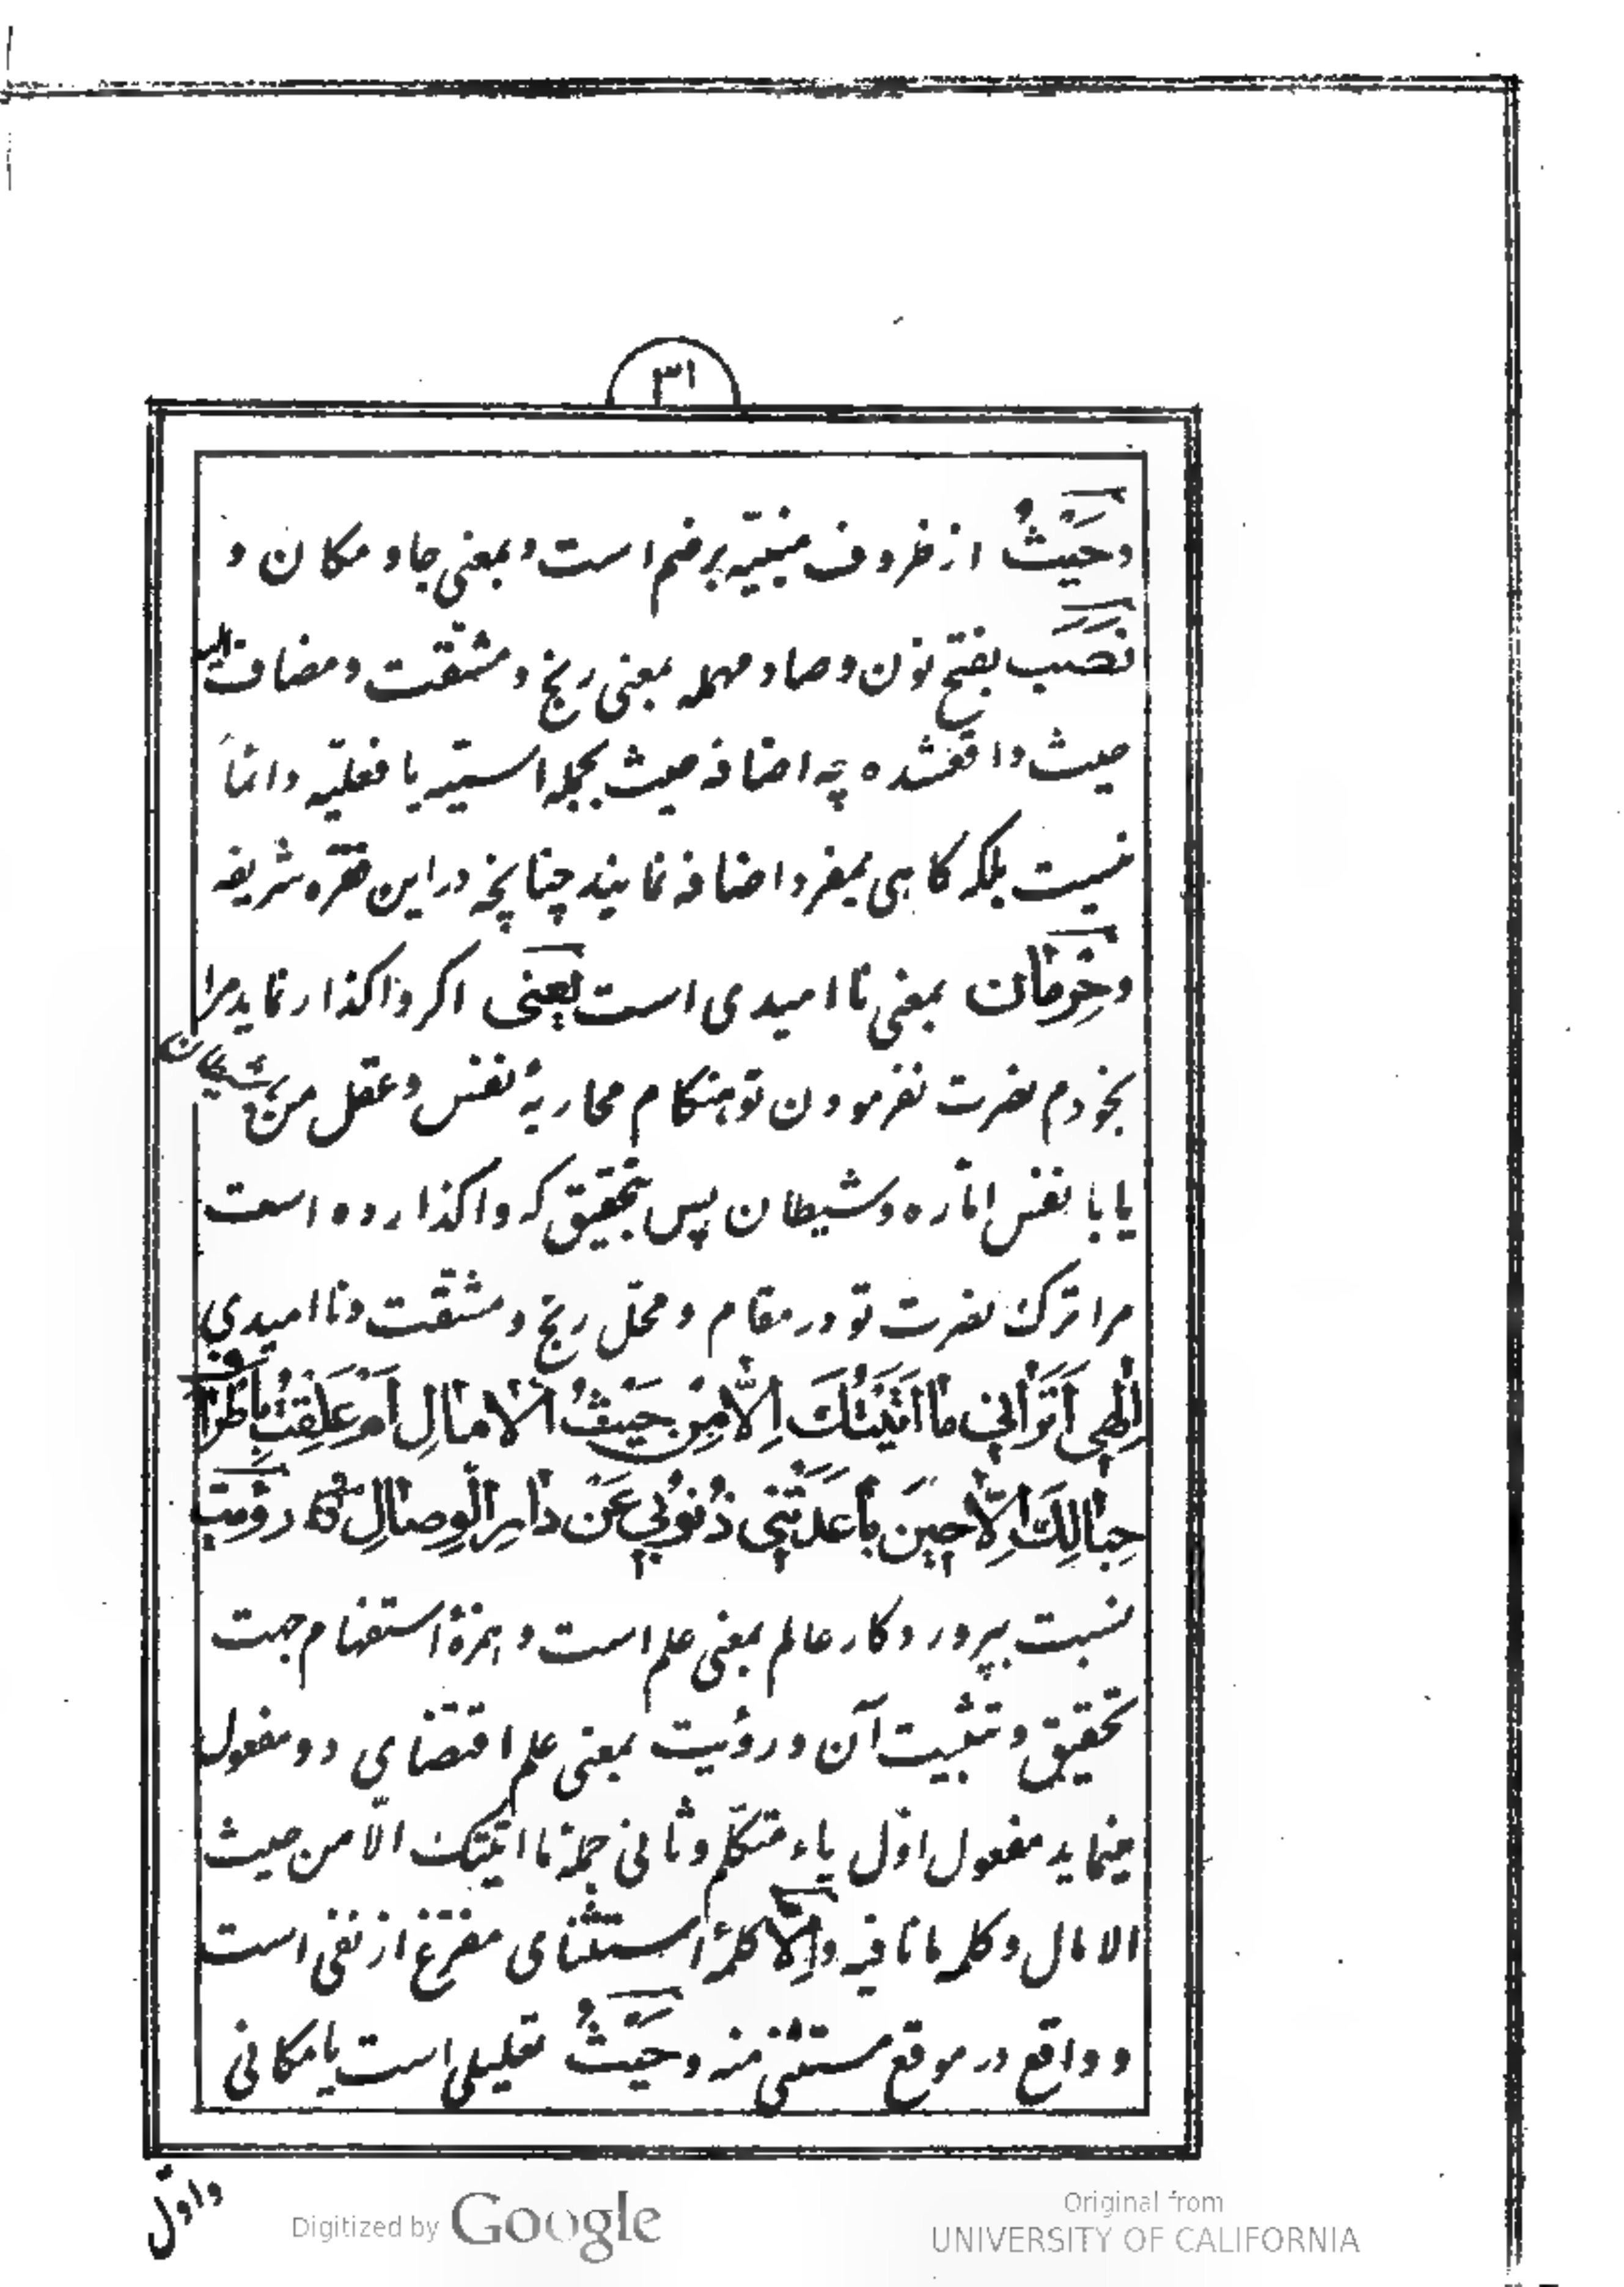 ۳۱
وحَیْثُ از ظروف مبنیّه بر ضم است و بمعنی جا و مکان و
نَصَب بفتح نون و صاد مهمله بمعنی رنج و مشقت و مضاف الیه
حیث واقعشده چه اضافهٔ حیث بجمله اسمیّه یا فعلیّه دائماً
نیست بلکه کاهی بمفرد اضافه نمایند چنانچه در این فقره شریفه
وحِرْمان بمعنی نا امیدی است یَعنی اکر واکذار نماید مرا
بخودم نصرت نفرمودن تو هنکام محاربهٔ نفس و عقل من و شیطان
یا با نفس امّاره و شیطان پس بتحقیق که واکذارده است
مرا ترک نصرت تو در مقام و محلّ رنج و مشقت و نا امیدی
اِلٰهی اَتَرانی ما اَتَیْتُكَ اِلّا مِنْ حَیْثُ الْامالِ اَمْ عَلِقْتُ بِاَطْرافِ
حِبالِكَ اِلّا حینَ باعَدَتْنی ذُنُوبی عَنْ دارِ الْوِصالِ رؤیت
نسبت بپروردکار عالم بمعنی علم است و همزهٔ استفهام جهت
تحقیق و تثبیت آن و رؤیت بمعنی علم اقتضای دو مفعول
مینماید مفعول اوّل یاء متکلّم و ثانی جملهٔ ما اتیتک الّا من حیث
الامال و کلمه ما نافیه و اِلّا کلمهٔ استثنای مفرّغ از نفی است
و واقع در موقع مستثنی منه و حَیْثُ تعلیلی است یا مکانی
واوّل
Digitized by Google
Original from
UNIVERSITY OF CALIFORNIA